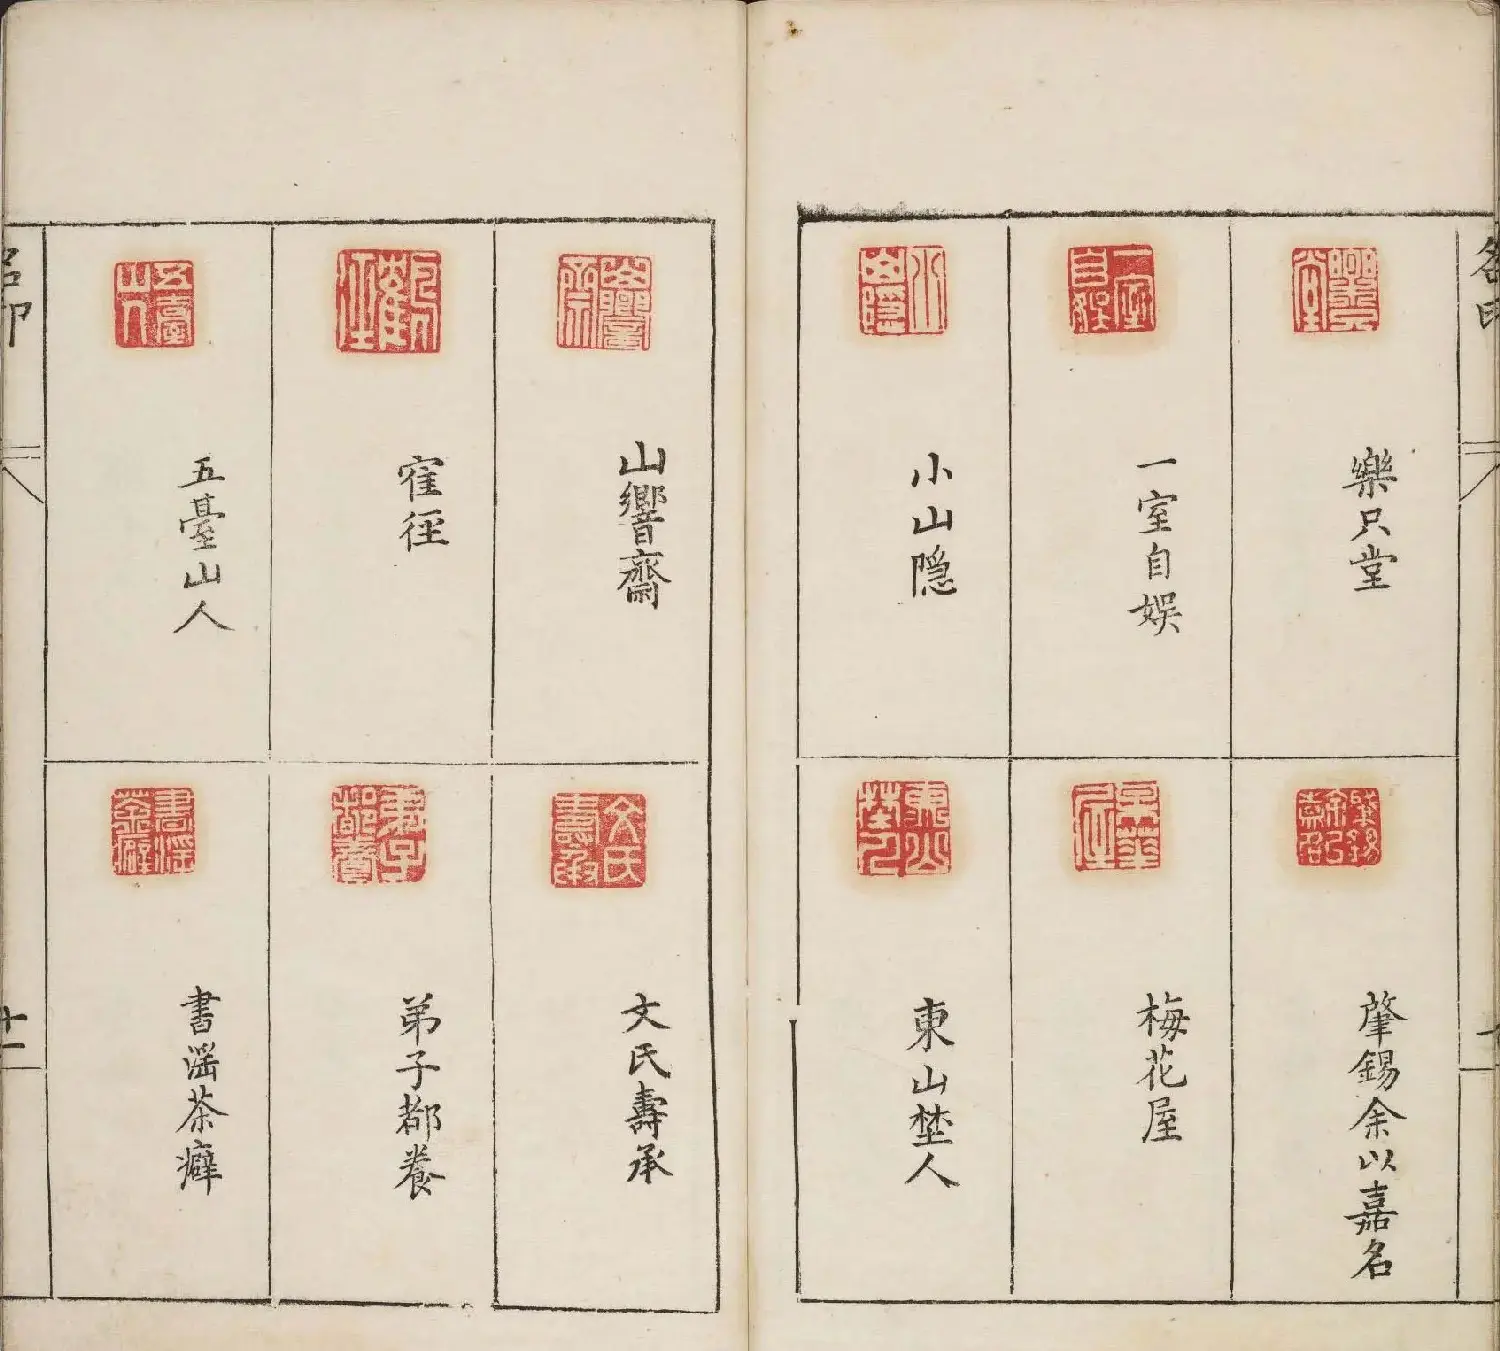 樂只堂
一室自娯
小山隠
肇錫余以嘉名
梅花屋
東山埜人
山響齋
寉徑
五臺山人
文氏壽承
弟子都養
書滛茶癖
名印
十二